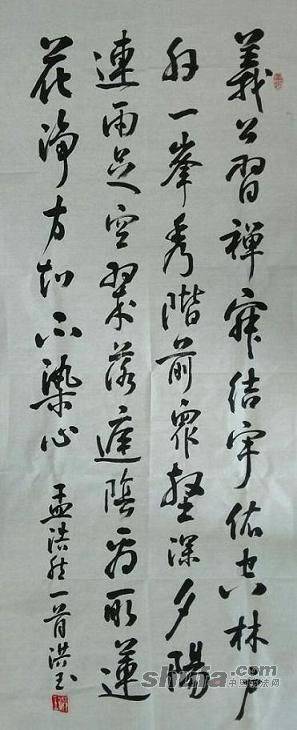 義公習禪寂結宇依空林戶
外一峯秀階前眾壑深夕陽
連雨足空翠落庭陰看取蓮
花淨方知不染心
孟浩然一首洪玉
shufa.com
中国书法网